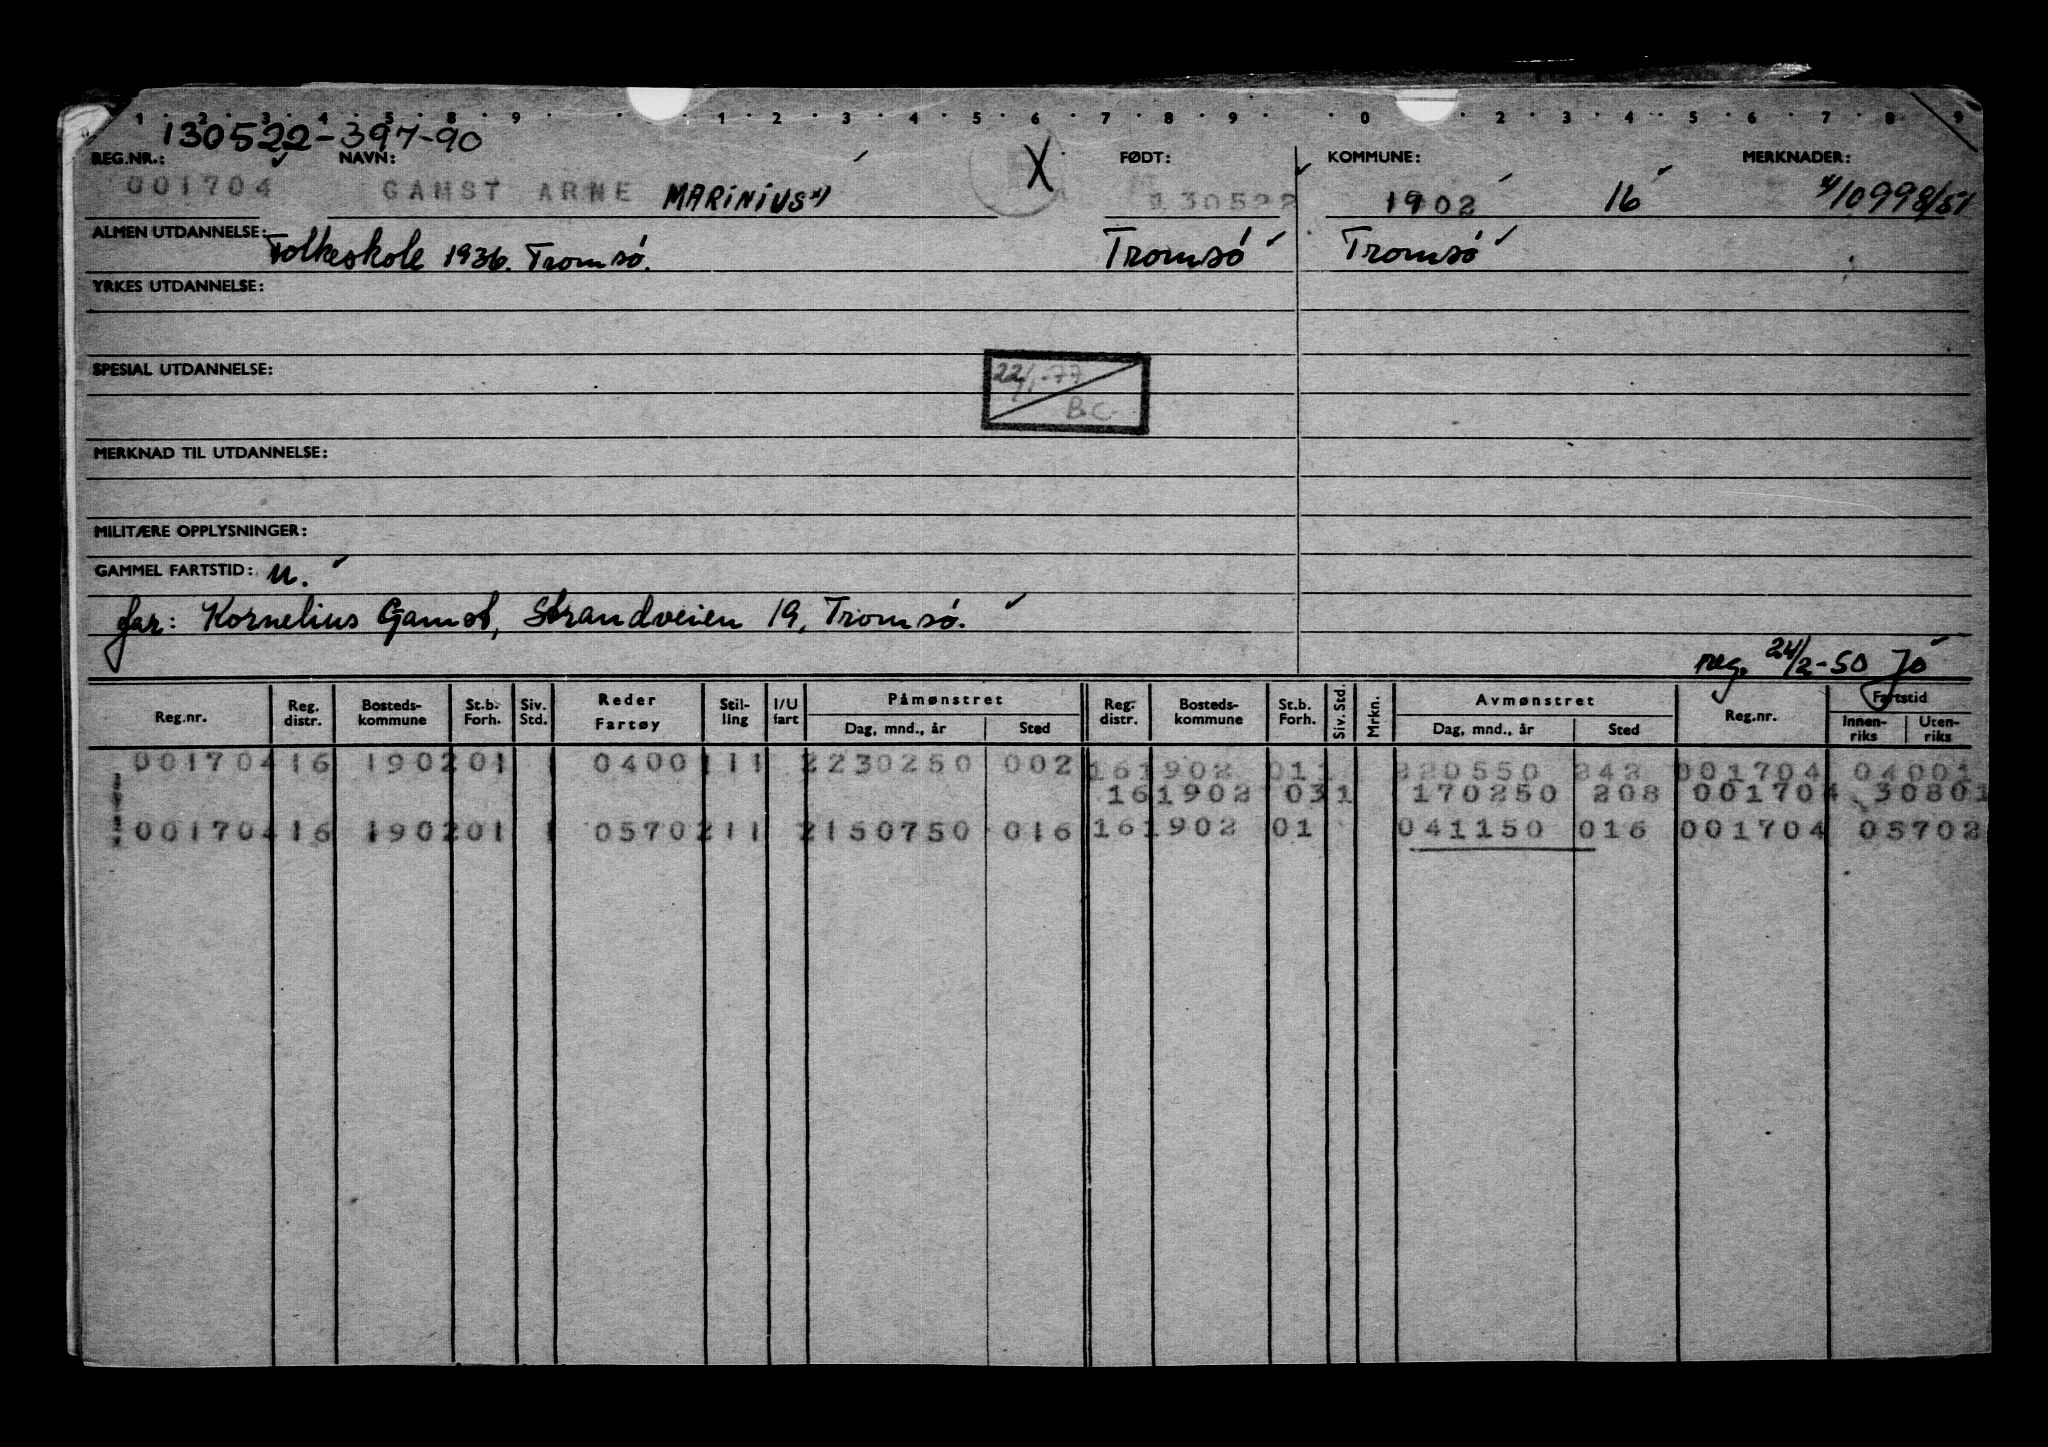 1 · 2 · 3 · 4 · 5 · 8 · 9 · · · 1 · 2 · 3 · 4 · 5 · 6 · 7 · 8 · 9 · · 0 · 2 · 3 · 4 · 5 · 6 · 7 · 8 · 9
130522-397-90
REG.NR.: NAVN: FØDT: KOMMUNE: MERKNADER:
001704 GAMST ARNE MARINIUS x) X 130522 1902 16 x/10998/51
ALMEN UTDANNELSE: Folkeskole 1936. Tromsø. Tromsø Tromsø
YRKES UTDANNELSE:
SPESIAL UTDANNELSE:
22/1-77
B.C.
MERKNAD TIL UTDANNELSE:
MILITÆRE OPPLYSNINGER:
GAMMEL FARTSTID: U.
far: Kornelius Gamst, Strandveien 19, Tromsø.
reg. 24/2-50 Jó
Reg.nr. Reg. distr. Bosteds-kommune St.b. Forh. Siv. Std. Reder Fartøy Stil-ling I/U fart Påmønstret Dag, mnd., år Sted Reg. distr. Bosteds-kommune St.b. Forh. Siv. Std. Mrkn. Avmønstret Dag, mnd., år Sted Reg.nr. Fartstid Innen-riks Uten-riks
001704 16 1902 01 1 0400 1 11 2 230250 002 16 1902 011 220550 242 001704 04001
16 1902 031 170250 208 001704 30801
001704 16 1902 01 1 0570 2 11 2 150750 016 16 1902 01 041150 016 001704 05702